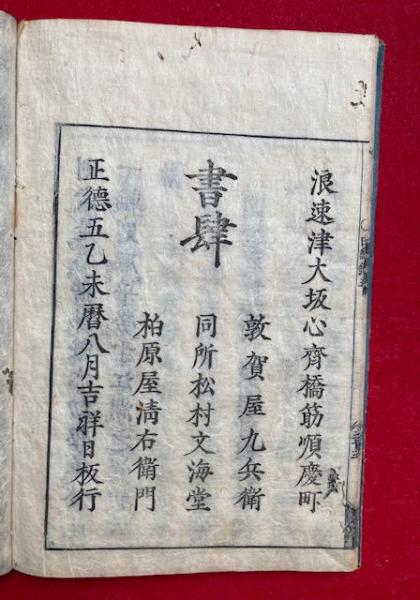 浪速津大坂心齊橋筋順慶町
敦賀屋九兵衛
書肆
同所松村文海堂
柏原屋清右衛門
正德五乙未曆八月吉祥日板行